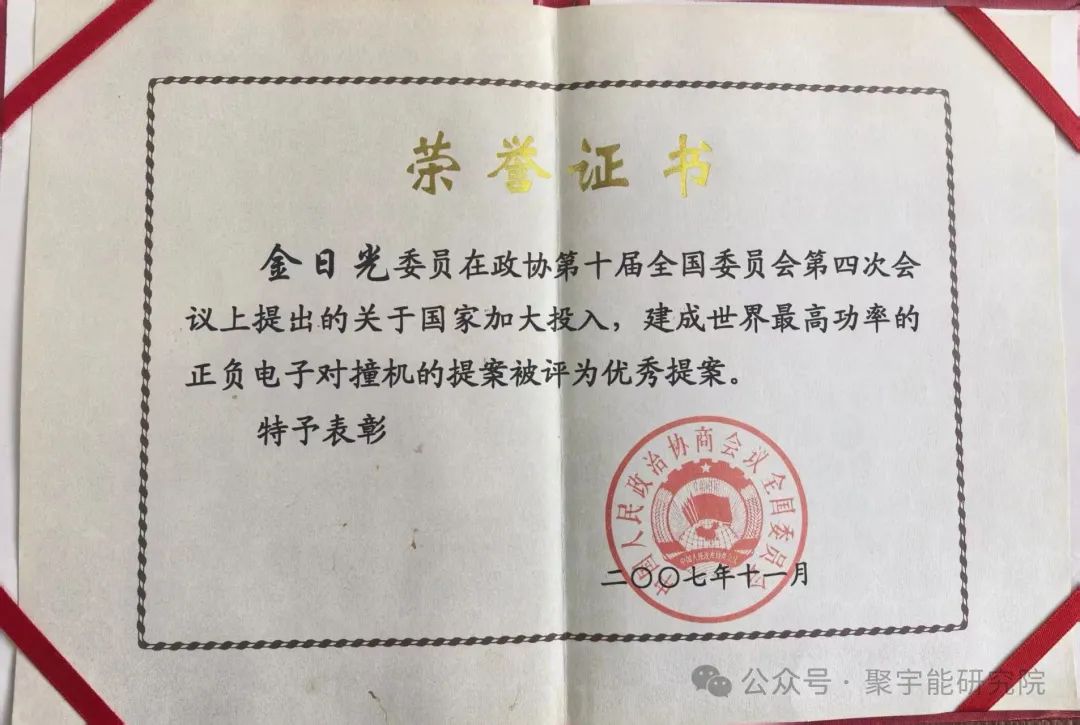 荣誉证书
金日光委员在政协第十届全国委员会第四次会
议上提出的关于国家加大投入，建成世界最高功率的
正负电子对撞机的提案被评为优秀提案。
特予表彰
中国人民政治协商会议全国委员会
中国人民政治协商会议
二〇〇七年十一月
公众号·聚宇能研究院